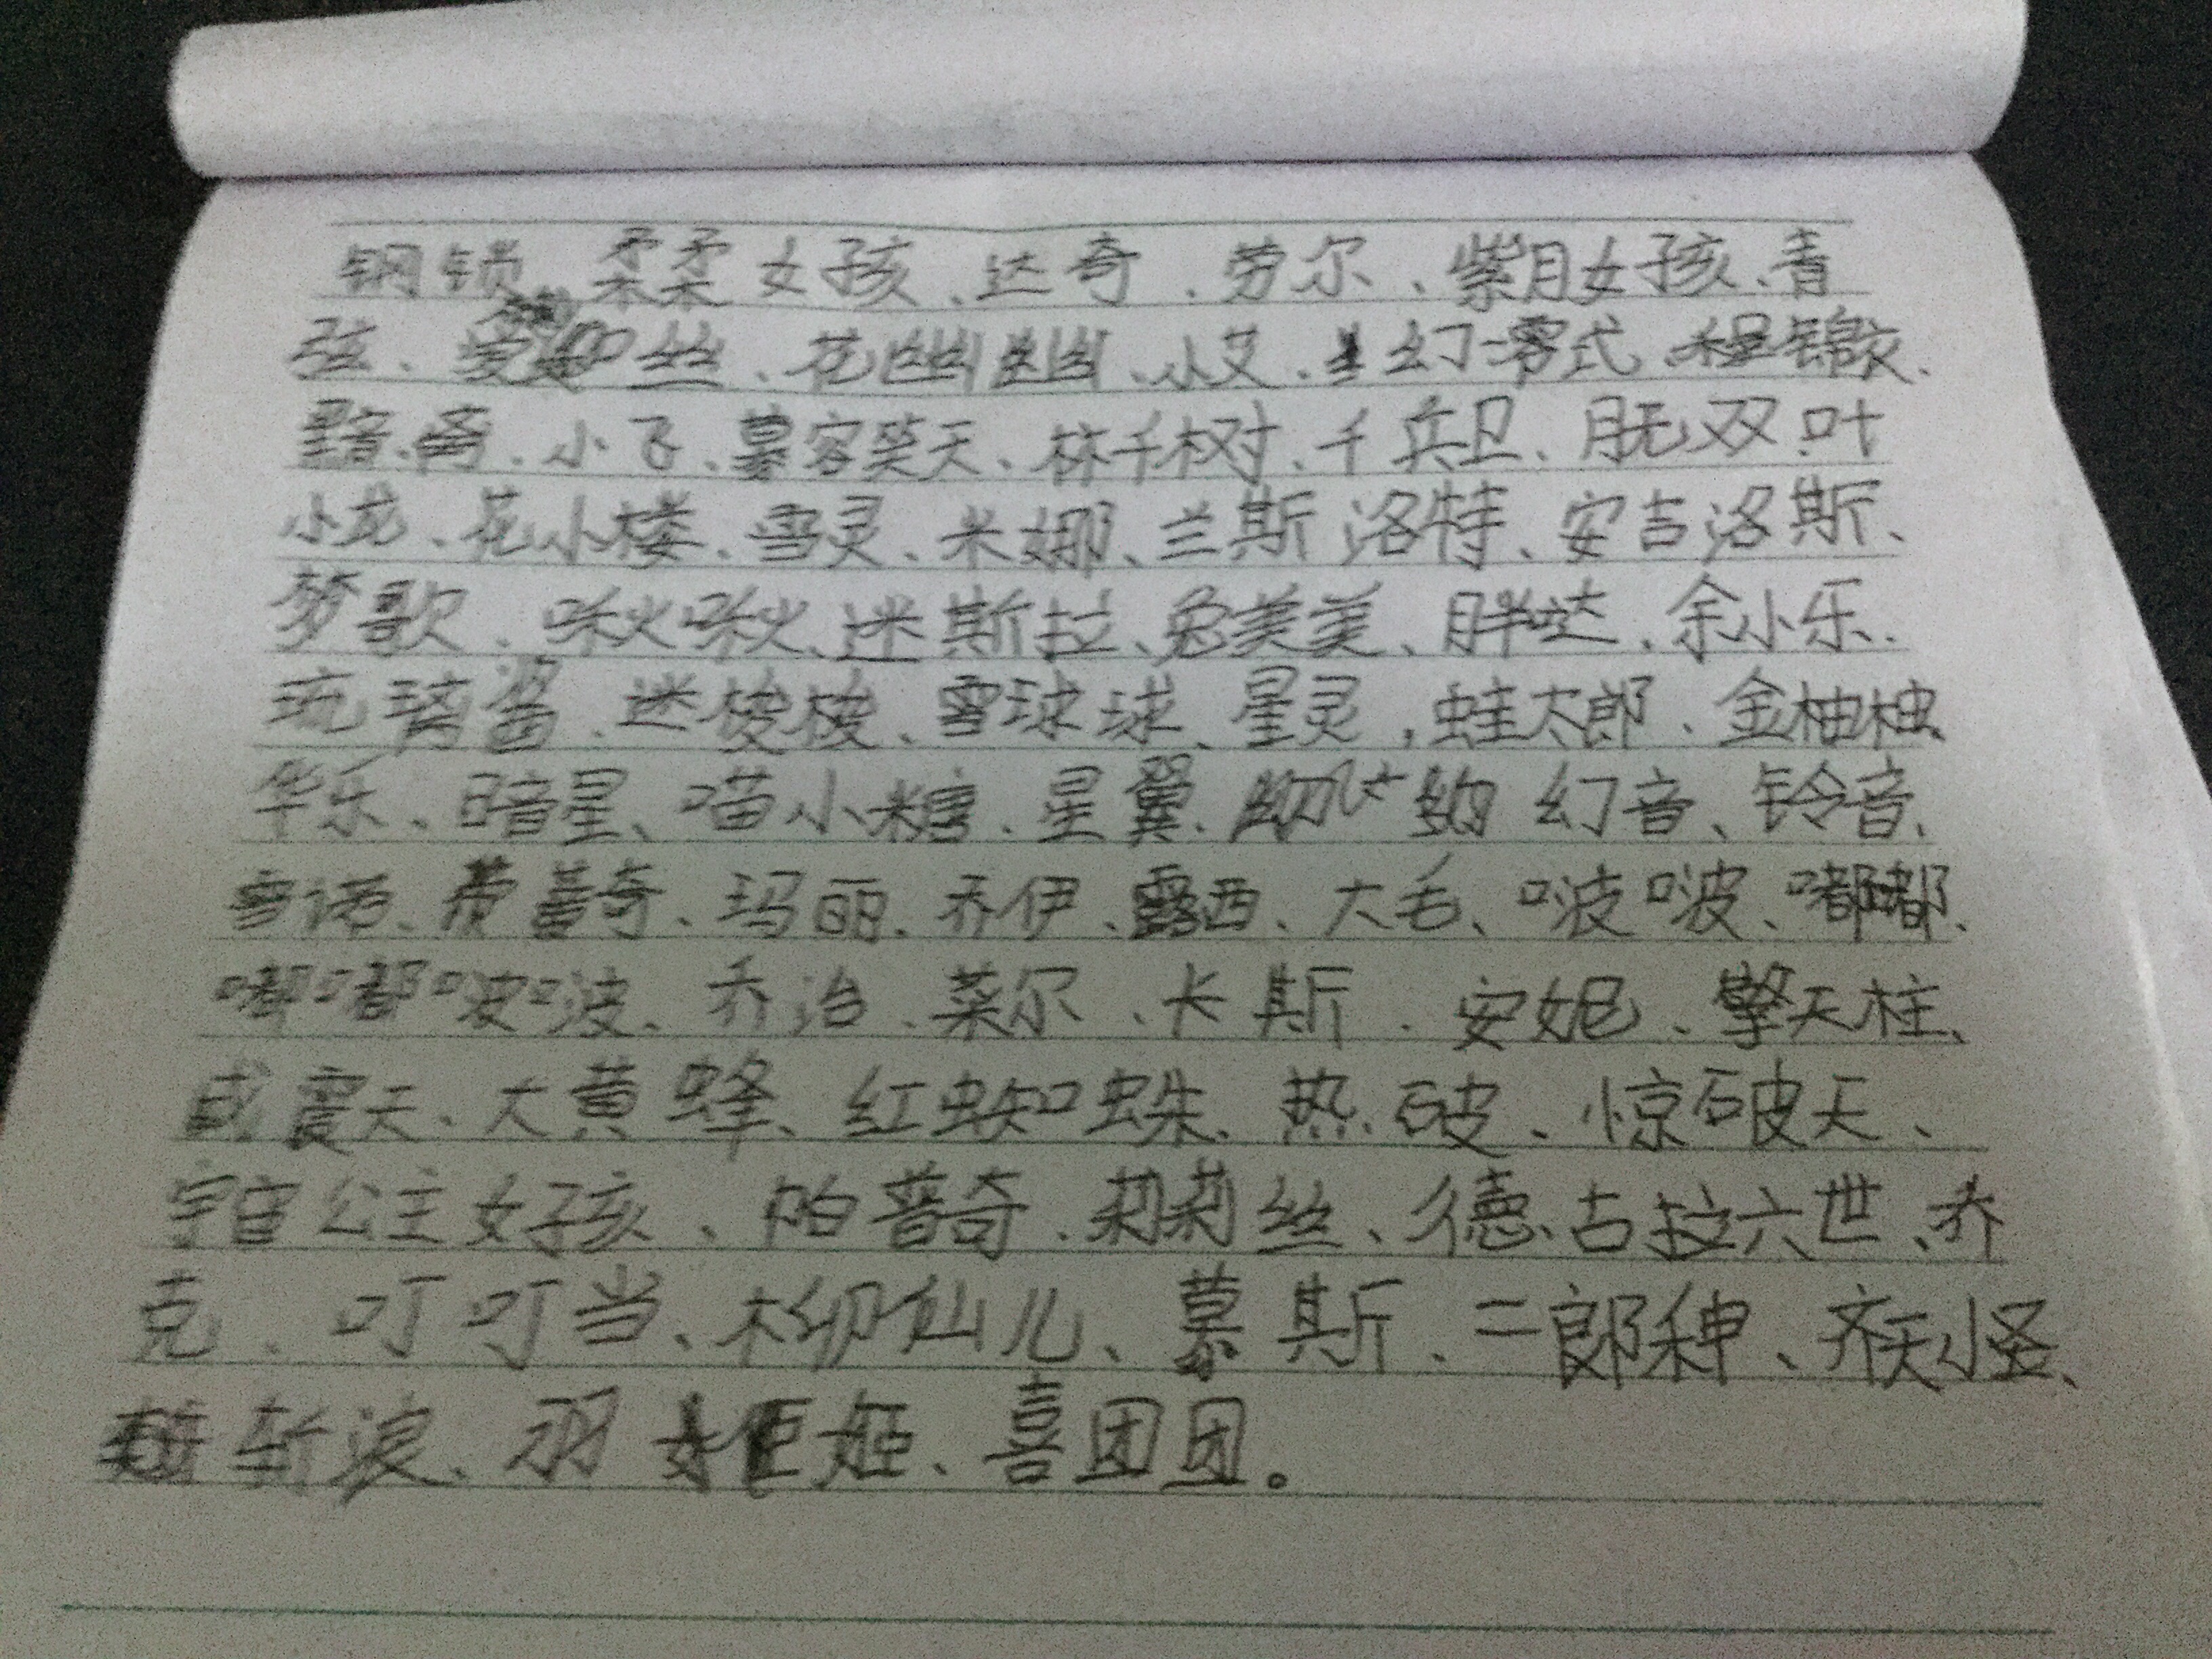 钢锁、柔柔女孩、达奇、劳尔、紫月女孩、青
弦、爱 丝、花幽幽、小艾、幻零式、程锦
小飞、慕容笑天、林千树、千兵卫、月无双、叶
小龙、花小楼、雪灵、米娜、兰斯洛特、安吉洛斯、
梦歌、啾啾、迷斯拉、兔美美、胖哒、余小乐、
琉璃酱、迷梭梭、雪球球、星灵，蛙太郎、金柚柚、
华乐、暗星、喵小糖、星翼、幻音、铃音、
雪诺、蕾奇、玛丽、乔伊、露西、大毛、啵啵、嘟嘟、
嘟嘟啵啵、乔治、莱尔、卡斯、安妮、擎天柱、
威震天、大黄蜂、红蜘蛛、热破、惊破天、
宇宙公主女孩、帕普奇、莉莉丝、德古拉六世、乔
克、叮叮当、柳仙儿、慕斯、二郎神、齐天小圣、
斩浪、羽 姬、喜团团。